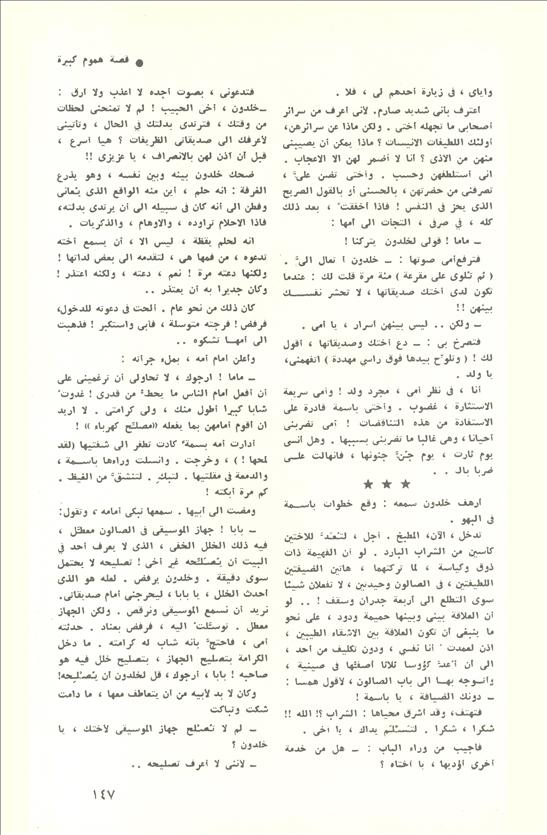 ● قصة هموم كبيرة
واياي ، في زيارة أحدهم لي ، فلا .
اعترف باني شديد صارم. لأني أعرف من سرائر
أصحابي ما تجهله أختي . ولكن ماذا عن سرائرهن،
أولئك اللطيفات الانيسات ؟ ماذا يمكن أن يصيبني
منهن من الاذى ؟ أنا لا أضمر لهن الا الاعجاب .
اني أستلطفهن وحسب . وأختي تضن عليّ ،
تصرفني من حضرتهن ، بالحسنى أو بالقول الصريح
الذي يحز في النفس ! فاذا أخفقت ، بعد ذلك
كله ، في صرفي ، التجأت الى أمها :
ــ ماما ! قولي لخلدون يتركنا !
فترفع أمي صوتها : ــ خلدون ! تعال اليّ .
( ثم تلوى على مقرعة ) مئة مرة قلت لك : عندما
تكون لدى أختك صديقاتها ، لا تحشر نفسك
بينهن !!
ــ ولكن .. ليس بينهن أسرار ، يا أمي .
فتصرخ بي : ــ دع أختك وصديقاتها ، أقول
لك ! ( وتلوّح بيدها فوق راسي مهددة ) اتفهمني،
يا ولد .
أنا ، في نظر أمي ، مجرد ولد ! وأمي سريعة
الاستثارة ، غضوب . وأختي باسمة قادرة على
الاستفادة من هذه التناقضات ! أمي تضربني
أحيانا ، وهي غالبا ما تضربني بسببها . وهل انسى
يوم ثارت ، يوم جُنّ جنونها ، فانهالت علــى
ضربا بالـ . .
★ ★ ★
أرهف خلدون سمعه : وقع خطوات باســمة
في البهو .
تدخل ، الآن، المطبخ . أجل ، لتعدّ للاختين
كأسين من الشراب البارد . لو أن الفهيمة ذات
ذوق وكياسة ، لما تركتهما ، هاتين الضيفتين
اللطيفتين ، في الصالون وحيدتين ، لا تفعلان شيئا
سوى التطلع الى أربعة جدران وسقف ! .. لو
أن العلاقة بيني وبينها حميمة ودود ، على نحو
ما ينبغي أن تكون العلاقة بين الاشقاء الطيبين ،
اذن لعمدت أنا نفسي ، ودون تكليف من أحد ،
الى أن أعدّ كؤوسا ثلاثا اصفّها في صينية ،
وأتوجه بهـا الى باب الصالون ، لأقول همسا :
ــ دونك الضيافة ، يا باسمة !
فتهتف، وقد أشرق محياها : الشراب ؟! الله !!
شكرا ، شكرا . لتسلّم يداك ، يا أخي .
فأجيب من وراء الباب : ــ هل من خدمة
أخرى أؤديها ، يا أختاه ؟
فتدعوني ، بصوت أجده لا أعذب ولا أرق :
ــخلدون ، أخي الحبيب ! لم لا تمنحني لحظات
من وقتك ، فترتدي بدلتك في الحال ، وتأتيني
لأعرفك الى صديقاتي الظريفات ؟ هيا أسرع ،
قبل أن آذن لهن بالانصراف ، يا عزيزي !!
ضحك خلدون بينه وبين نفسه ، وهو يذرع
الغرفة : انه حلم ، أين منه الواقع الذي يُعاني
وفطن الى أنه كان في سبيله الى أن يرتدي بدلته،
فاذا الاحلام تراوده ، والاوهام ، والذكريات .
انه لحلم يقظة ، ليس الا ، أن يسمع أخته
تدعوه ، من فمها هي ، لتقدمه الى بعض لداتها !
ولكنها دعته مرة ! نعم ، دعته ، ولكنه اعتذر !
وكان جديرا به أن يعتذر ..
كان ذلك من نحو عام . ألحت في دعوته للدخول،
فرفض! فرجته متوسلة ، فأبى واستكبر ! فذهبت
الى أمهـا تشكوه ..
وأعلن أمام أمه ، بملء جرأته :
ــ ماما ! أرجوك ، لا تحاولي أن ترغميني على
أن أفعل أمام الناس ما يحطّ من قدري ! غدوت
شابا كبيرا أطول منك ، ولي كرامتي . لا أريد
أن أقوم أمامهن بما يفعله «مصلّح كهرباء » !
أدارت أمه بسمة كادت تطفر الى شفتيها (لقد
لمحها !) ، وخرجت . وانسلت وراءها باسمـة ،
والدمعة في مقلتيها . لتبك . لتنشقّ من الغيظ .
كم مرة أبكته !
ومضت الى أبيها . سمعها تبكي أمامه ، وتقول:
ــ بابا ! جهاز الموسيقى في الصالون معطّل ،
فيه ذلك الخلل الخفي ، الذي لا يعرف أحد في
البيت أن يُصلّحه غير أخي ! تصليحه لا يحتمل
سوى دقيقة . وخلدون يرفض . لعله هو الذي
أحدث الخلل ، يا بابا ، ليحرجني أمام صديقاتي.
نريد أن نسمع الموسيقى ونرقص . ولكن الجهاز
معطل . توسّلت اليه ، فرفض بعناد . حدثته
أمي ، فاحتجّ بأنه شاب له كرامته . ما دخل
الكرامة بتصليح الجهاز ، بتصليح خلل فيه هو
صاحبه ! بابا ، أرجوك ، قل لخلدون أن يُصلحه!
وكان لا بد لأبيه من أن يتعاطف معها ، ما دامت
شكت وتباكت
ــ لم لا تُصلح جهاز الموسيقى لأختك ، يا
خلدون ؟
ــ لأنني لا أعرف تصليحه ..
١٤٧